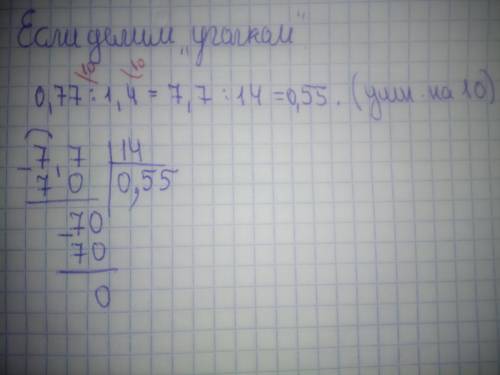 Если делим "уголком"
10 10
0,77 : 1,4 = 7,7 : 14 = 0,55. (умн. на 10)
- 7,7 | 14
7 0 | 0,55
- 70
70
0